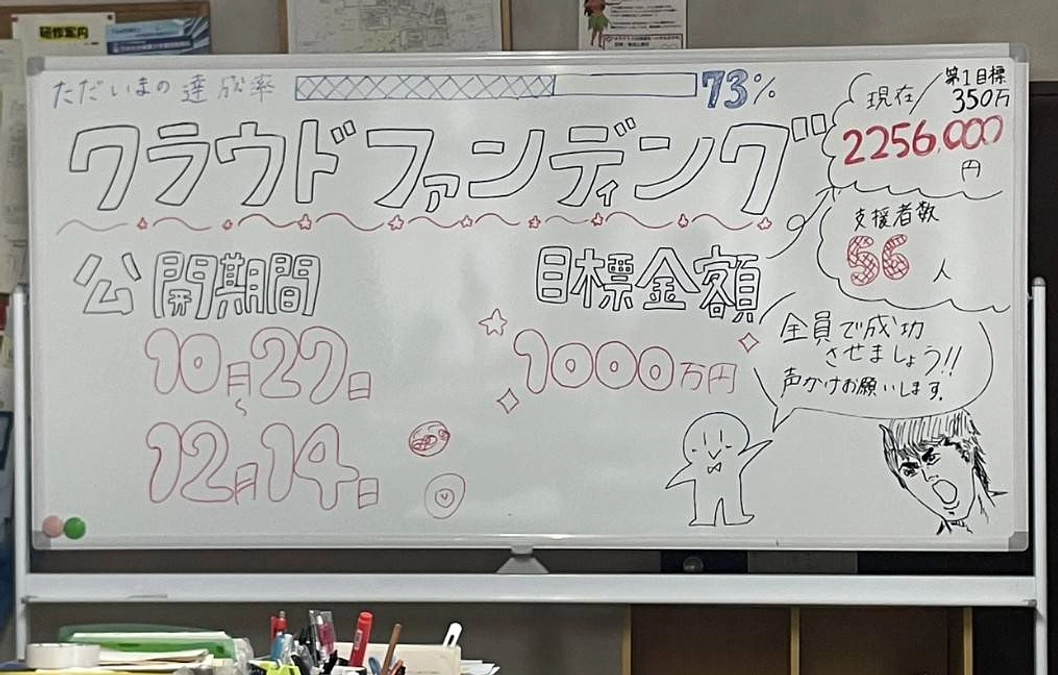 研修案内
ただいまの達成率 73%
現在/第1目標350万
2256,000円
クラウドファンディング
支援者数
56人
公開期間
目標金額
10月27日
〜
12月14日
1000万円
全員で成功
させましょう!!
声かけお願いします。